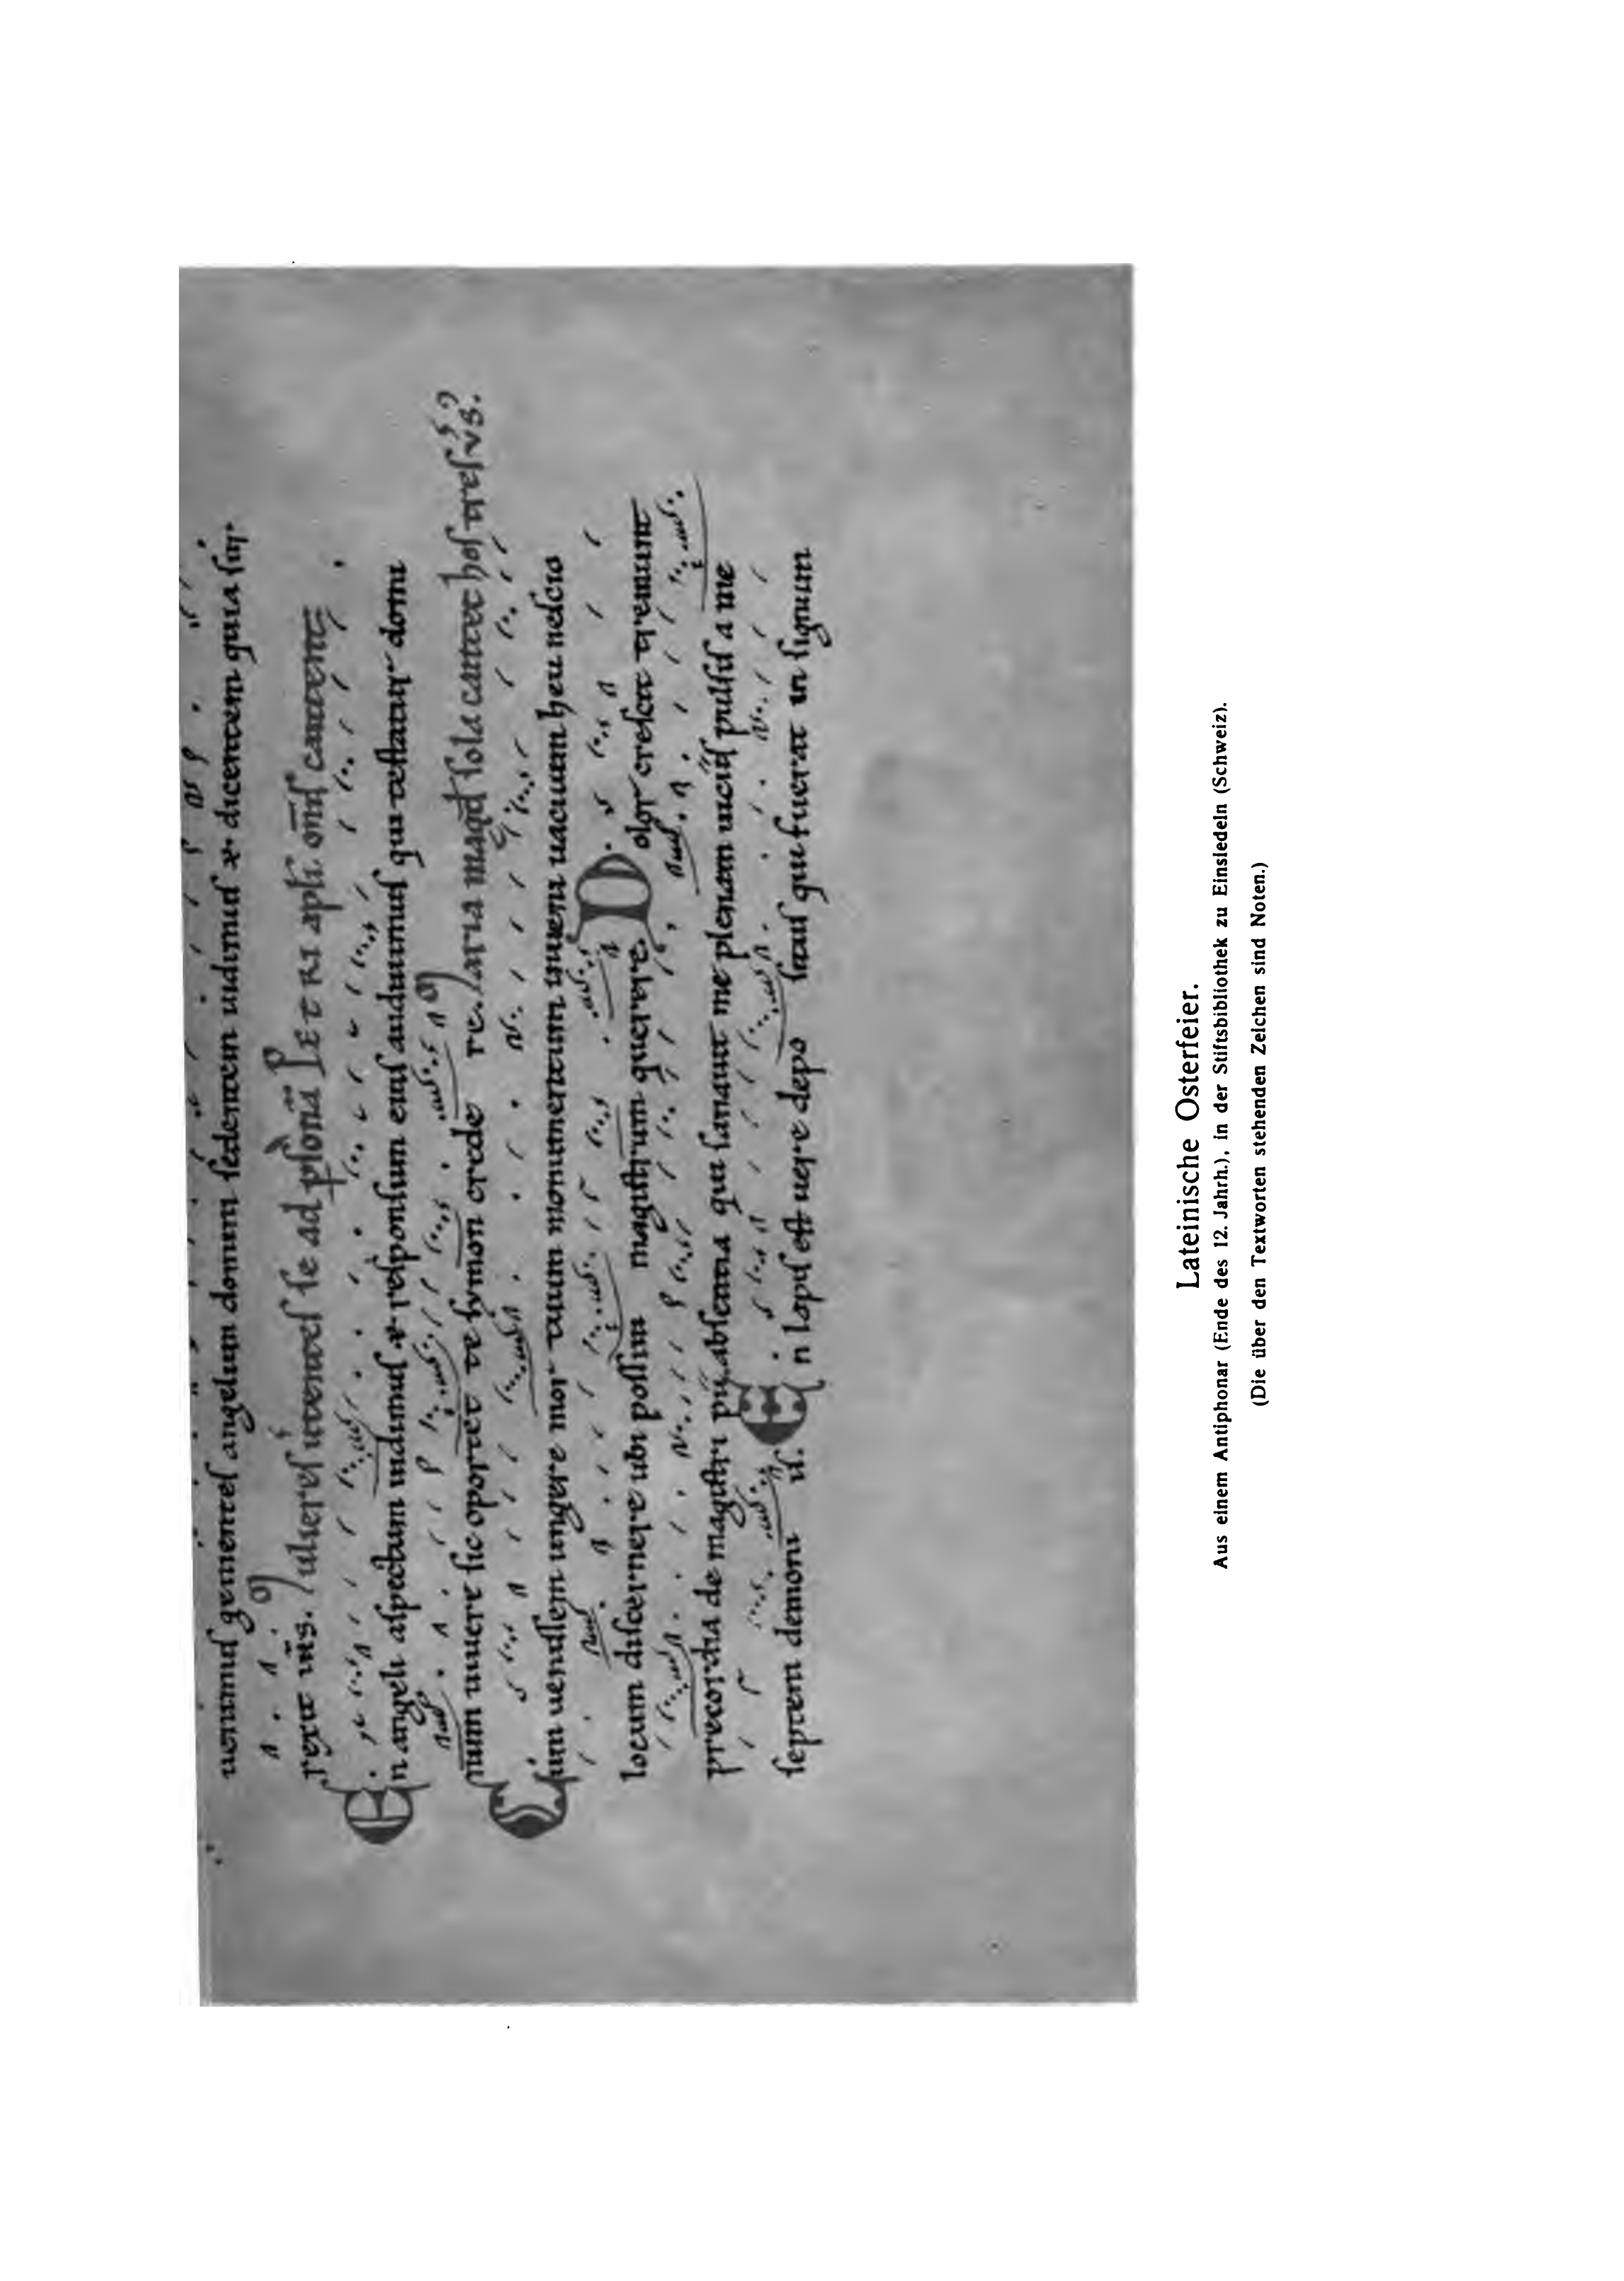 uenimus gementes angelum domini sedentem uidimus & dicentem quia sur
rexit iħs. Mulieres uertentes se ad psonā PETRI apłi om̄s cantent
En angeli aspectum uidimus & responsum eius audiuimus qui testatur domi
num uiuere sic oportet te symon credere. Maria magđ sola cantet hos tres uersus.
Cum uenissem ungere mortuum monumentum inueni uacuum heu nescio
locum discernere ubi possim magistrum querere. Dolor crescit tremunt
precordia de magistri pii absentia qui sanauit me plenam uiciis pulsis a me
septem demoniis. En lapis est uere depositus qui fuerat in signum
Lateinische Osterfeier.
Aus einem Antiphonar (Ende des 12. Jahrh.), in der Stiftsbibliothek zu Einsiedeln (Schweiz).
(Die über den Textworten stehenden Zeichen sind Noten.)